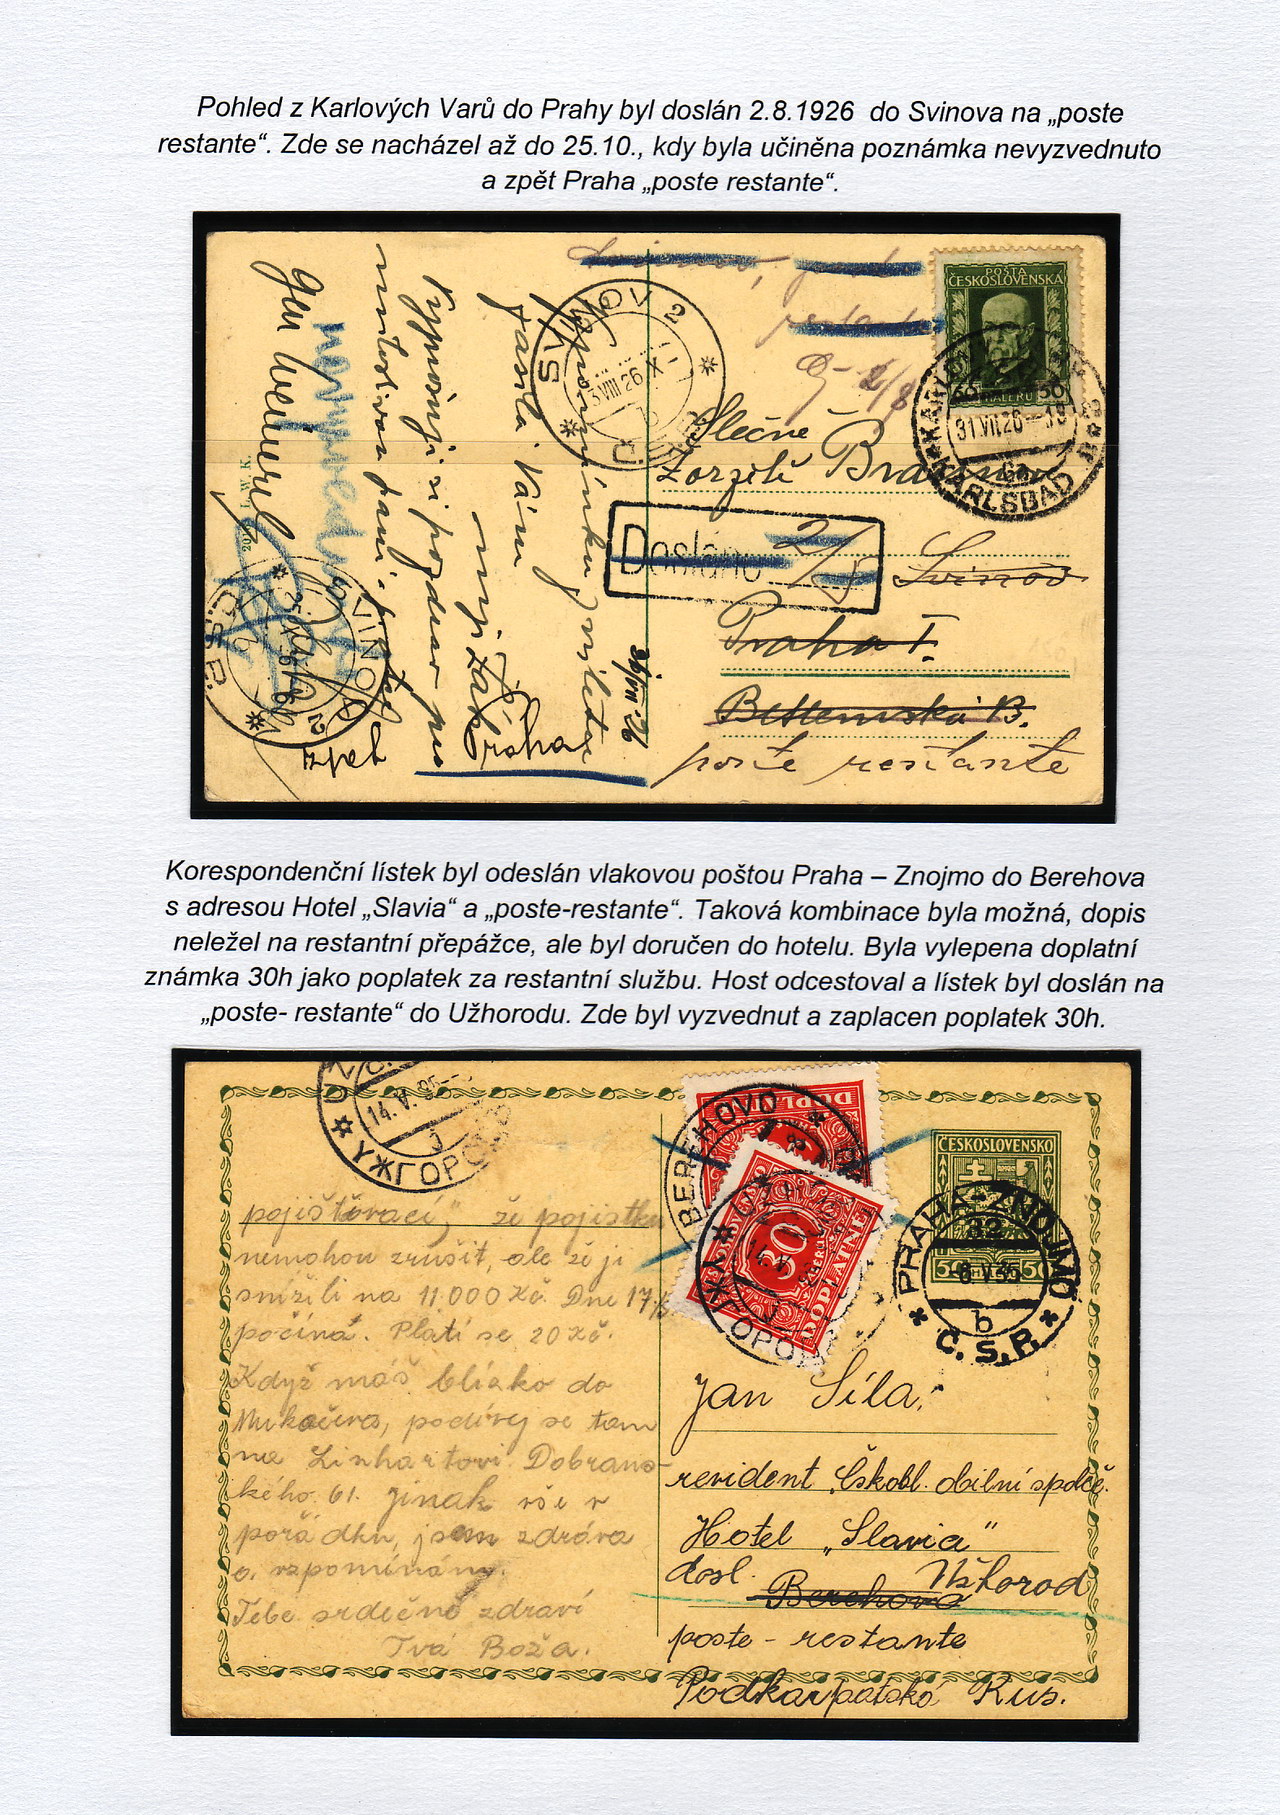 Pohled z Karlových Varů do Prahy byl doslán 2.8.1926 do Svinova na „poste
restante“. Zde se nacházel až do 25.10., kdy byla učiněna poznámka nevyzvednuto
a zpět Praha „poste restante“.
POŠTA
ČESKOSLOVENSKÁ
50 HALERU 50
31.VII.26 - 18
KARLSBAD
SVINOV 2
3.VIII.26.X
Slečně
Dosláno
2/8
Svinov
Praha I.
Betlemská
poste restante
Vzpomínku z výletu
zasílá Vám
Praha
zpět
Korespondenční lístek byl odeslán vlakovou poštou Praha – Znojmo do Berehova
s adresou Hotel „Slavia“ a „poste-restante“. Taková kombinace byla možná, dopis
neležel na restantní přepážce, ale byl doručen do hotelu. Byla vylepena doplatní
známka 30h jako poplatek za restantní službu. Host odcestoval a lístek byl doslán na
„poste- restante“ do Užhorodu. Zde byl vyzvednut a zaplacen poplatek 30h.
14.V.35
УЖГОРОД
BEREHOVO
DOPLATNÉ
30
DOPLATNÉ
ČESKOSLOVENSKO
50
PRAHA - ZNOJMO
32
-8.V.35
b
Č.S.P.
pojišťovací,“ že pojistku
nemohou zrušit, ale že ji
snížili na 11.000 Kč. Dne 17/5
počíná. Platí se 20 Kč.
Když máš blízko do
Mukačeva, podívej se tam
na Linhartovi Dobrans-
kého 61. Jinak vše v
pořádku, jsem zdráva
a vzpomínám.
Tebe srdečně zdraví
Tvá Boža.
Jan Síla,
revident Čskosl. obilní spolč.
Hotel „Slavia“
dosl. Berehovo Užhorod
poste - restante
Podkarpatská Rus.